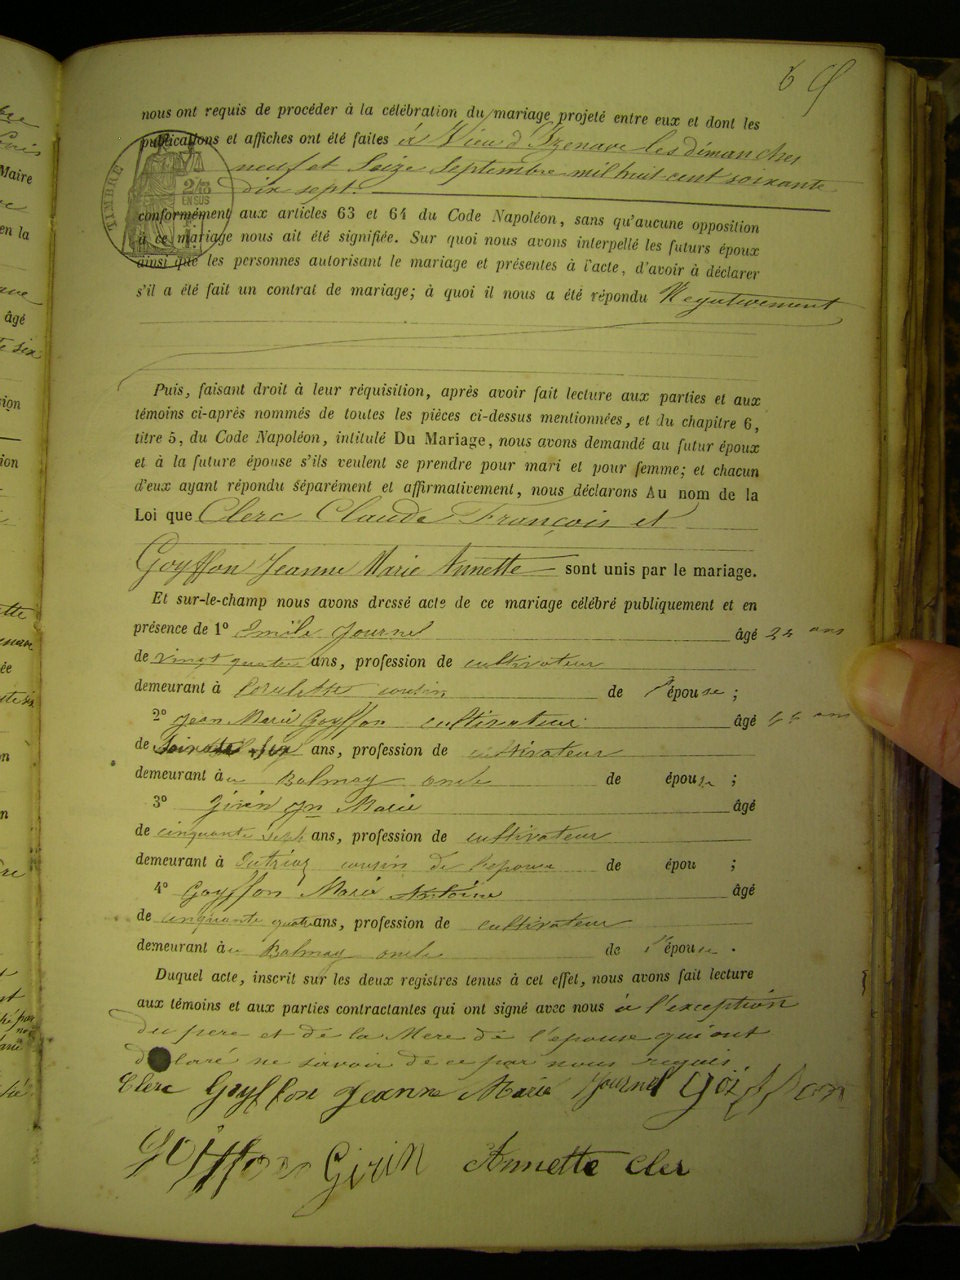 nous ont requis de procéder à la célébration du mariage projeté entre eux et dont les
publications et affiches ont été faites à Vieu d'Izenave les dimanches
neuf et Seize Septembre mil huit cent soixante
dix sept.
conformément aux articles 63 et 64 du Code Napoléon, sans qu'aucune opposition
à ce mariage nous ait été signifiée. Sur quoi nous avons interpellé les futurs époux
ainsi que les personnes autorisant le mariage et présentes à l'acte, d'avoir à déclarer
s'il a été fait un contrat de mariage; à quoi il nous a été répondu Négativement
TIMBRE
EN SUS
Puis, faisant droit à leur réquisition, après avoir fait lecture aux parties et aux
témoins ci-après nommés de toutes les pièces ci-dessus mentionnées, et du chapitre 6,
titre 5, du Code Napoléon, intitulé Du Mariage, nous avons demandé au futur époux
et à la future épouse s'ils veulent se prendre pour mari et pour femme; et chacun
d'eux ayant répondu séparément et affirmativement, nous déclarons Au nom de la
Loi que Clerc Claude François et
Goyffon Jeanne Marie Annette sont unis par le mariage.
Et sur-le-champ nous avons dressé acte de ce mariage célébré publiquement et en
présence de 1° Emile Journel âgé 24 ans
de vingt quatre ans, profession de cultivateur
demeurant à cousin de l'épouse ;
2° Jean Marie Goyffon cultivateur âgé ans
de ans, profession de cultivateur
demeurant à Balmay oncle de épouse ;
3° Girin Jn Marie âgé
de cinquante sept ans, profession de cultivateur
demeurant à cousin de l'épouse de épou ;
4° Goyffon Marie Antoine âgé
de cinquante quatre ans, profession de cultivateur
demeurant à Balmay oncle de l'épouse .
Duquel acte, inscrit sur les deux registres tenus à cet effet, nous avons fait lecture
aux témoins et aux parties contractantes qui ont signé avec nous à l'exception
du père et de la Mère de l'épouse qui ont
déclaré ne savoir de ce par nous requis
Clerc Goyffon Jeanne Marie Journel Goiffon
Goiffon Girin Annette Cler